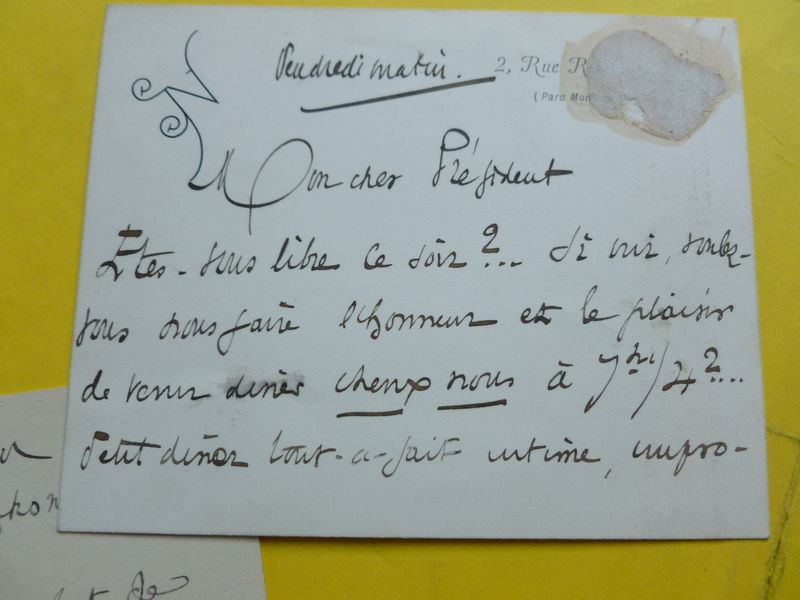 Vendredi matin.
2, Rue R
(Parc Mon
Mon cher Président
Êtes-vous libre ce soir ?... Si oui, voulez-
vous nous faire l'honneur et le plaisir
de venir diner cheux nous à 7 h 1/4 ?...
Petit diner tout-a-fait intime, impro-